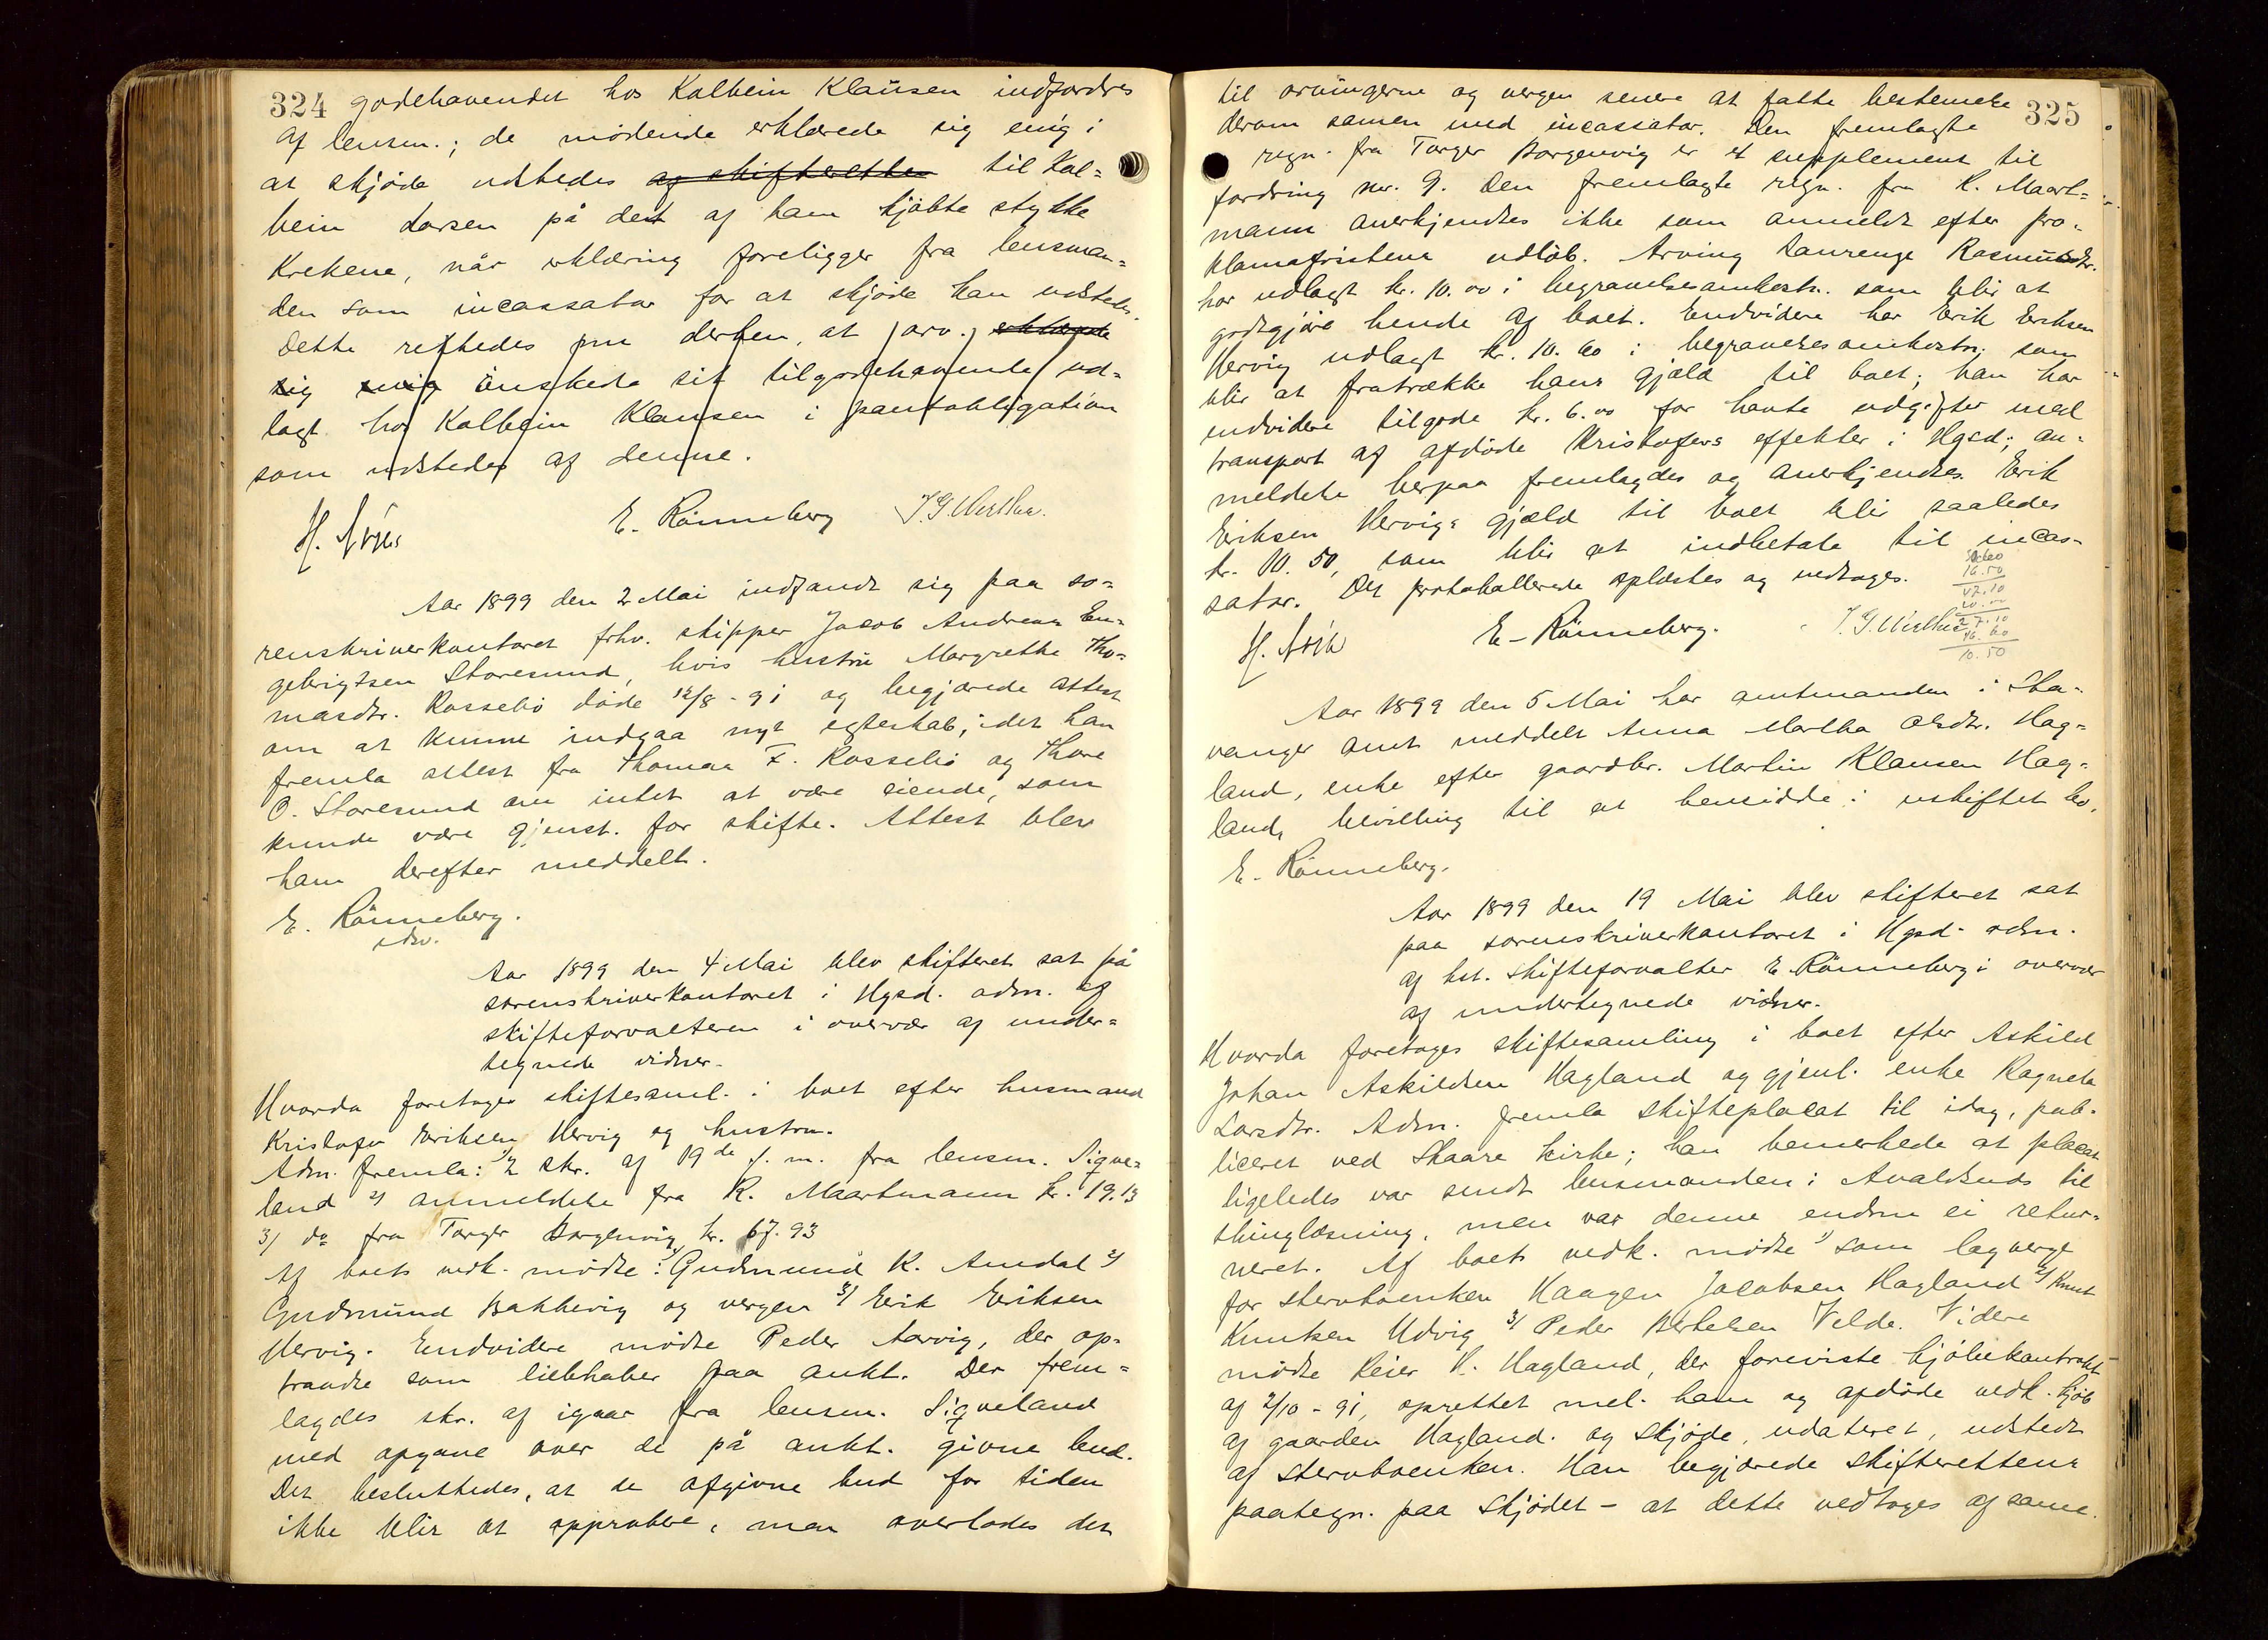 324 godehavendet hos Kolbein Klausen indfordres
af lensm.; de mödende erklærede sig enig i
at skjöde udstedes af skifteretten til Kol=
bein Larsen på det af ham kjöbte stykke
Krekene, når erklæring foreligger fra lensman=
den som incassator for at skjöde kan udstedes.
Dette rettedes derhen, at arv. erklærede
sig enig önskede sit tilgodehavende ud=
lagt hos Kolbein Klausen i pantobligation
som udstedes af denne.
E. Rönneberg
Aar 1899 den 2 Mai indfandt sig paa so=
renskriverkontoret fhv. skipper Jacob Andreas En=
gebrigtsen Storesund, hvis hustru Margrethe Tho=
masdtr. Rossebö döde 12/8-91 og begjærede attest
om at kunne indgaa nyt egteskab, idet han
fremla attest fra Thomas F. Rossebö og Thore
O. Storesund om intet at være eiende, som
kunde være gjenst. for skifte. Attest blev
ham derefter meddelt.
E. Rönneberg.
Aar 1899 den 4 Mai blev skifteret sat på
sorenskriverkontoret i Hgsd. adm. af
skifteforvalteren i overvær af under=
tegnede vidner.
Hvorda foretoges skiftesaml. i boet efter husmand
Kristofer Eriksen Hervig og hustru.
Adm. fremla: 1) 2 skr. af 19de f. m. fra lensm. Sigve=
land 2) anmeldelse fra R. Maartmann kr. 19.13
3) do fra Torger Borgenvig kr. 67.93
Af boets vedk. mödte: 1) Gudmund K. Amdal 2)
Gudmund Bakkevig og vergen 3) Erik Eriksen
Hervig. Endvidere mödte Peder Aarvig, der op=
traadte som liebhaber paa aukt. Der frem=
lagdes skr. af igaar fra lensm. Sigveland
med opgave over de på aukt. givne bud.
Det besluttedes, at de afgivne bud for tiden
ikke blir at approbere, man overlodes det
325
til arvingerne og vergen senere at fatte bestemmelse
derom samen med incassator. Den fremlagte
regn. fra Torger Borgenvig er et supplement til
fordring nr. 9. Den fremlagte regn. fra R. Maart=
mann anerkjendtes ikke som anmeldt efter pro=
klamafristens udlöb. Arving Laurenze Rasmusdtr.
har udlagt kr. 10.00 i begravelsesomkostn. som blir at
godtgjöre hende af boet. Endvidere har Erik Eriksen
Hervig udlagt kr. 10.60 i begravelsesomkostn. som
blir at fratrække hans gjæld til boet; han har
endvidere tilgode kr. 6.00 for havte udgifter med
transport af afdöde Kristofers effekter i Hgsd; an=
meldelse herpaa fremlagdes og anerkjendtes. Erik
Eriksen Hervigs gjæld til boet blir saaledes
kr. 10.50, som blir at indbetale til incas=
sator. Det protokollerede oplæstes og vedtoges.
16.50
47.10
20.00
27.10
16.60
10.50
E. Rönneberg.
Aar 1899 den 5 Mai har amtmanden i Sta=
vanger amt meddelt Anna Martha Olsdtr. Hag=
land, enke efter gaardbr. Martin Klausen Hag=
land, bevilling til at hensidde i uskiftet bo.
E. Rönneberg.
Aar 1899 den 19 Mai blev skifteret sat
paa sorenskriverkontoret i Hgsd. adm.
af kst. skifteforvalter E. Rönneberg i overvær
af undertegnede vidner.
Hvorda foretoges skiftesamling i boet efter Askild
Johan Askildsen Hagland og gjenl. enke Ragnela
Larsdtr. Adm. fremla skifteplacat til idag, pub=
liceret ved Skaare kirke; han bemerkede at placat
ligeledes var sendt lensmanden i Avaldsnes til
thinglæsning, men var denne endnu ei retur=
neret. Af boets vedk. mödte 1) som lagverge
for stervboenken Haagen Jacobsen Hagland 2) Knut
Knutsen Udvig 3) Peder Bertelsen Velde. Videre
mödte Reier H. Hagland, der foreviste kjöbekontrakt
af 2/10-91, oprettet mel. ham og afdöde vedk. kjöb
af gaarden Hagland. og skjöde, udateret, udstedt
af stervboenken. Han begjærede skifterettens
paategn. paa skjödet - at dette vedtoges af samme.